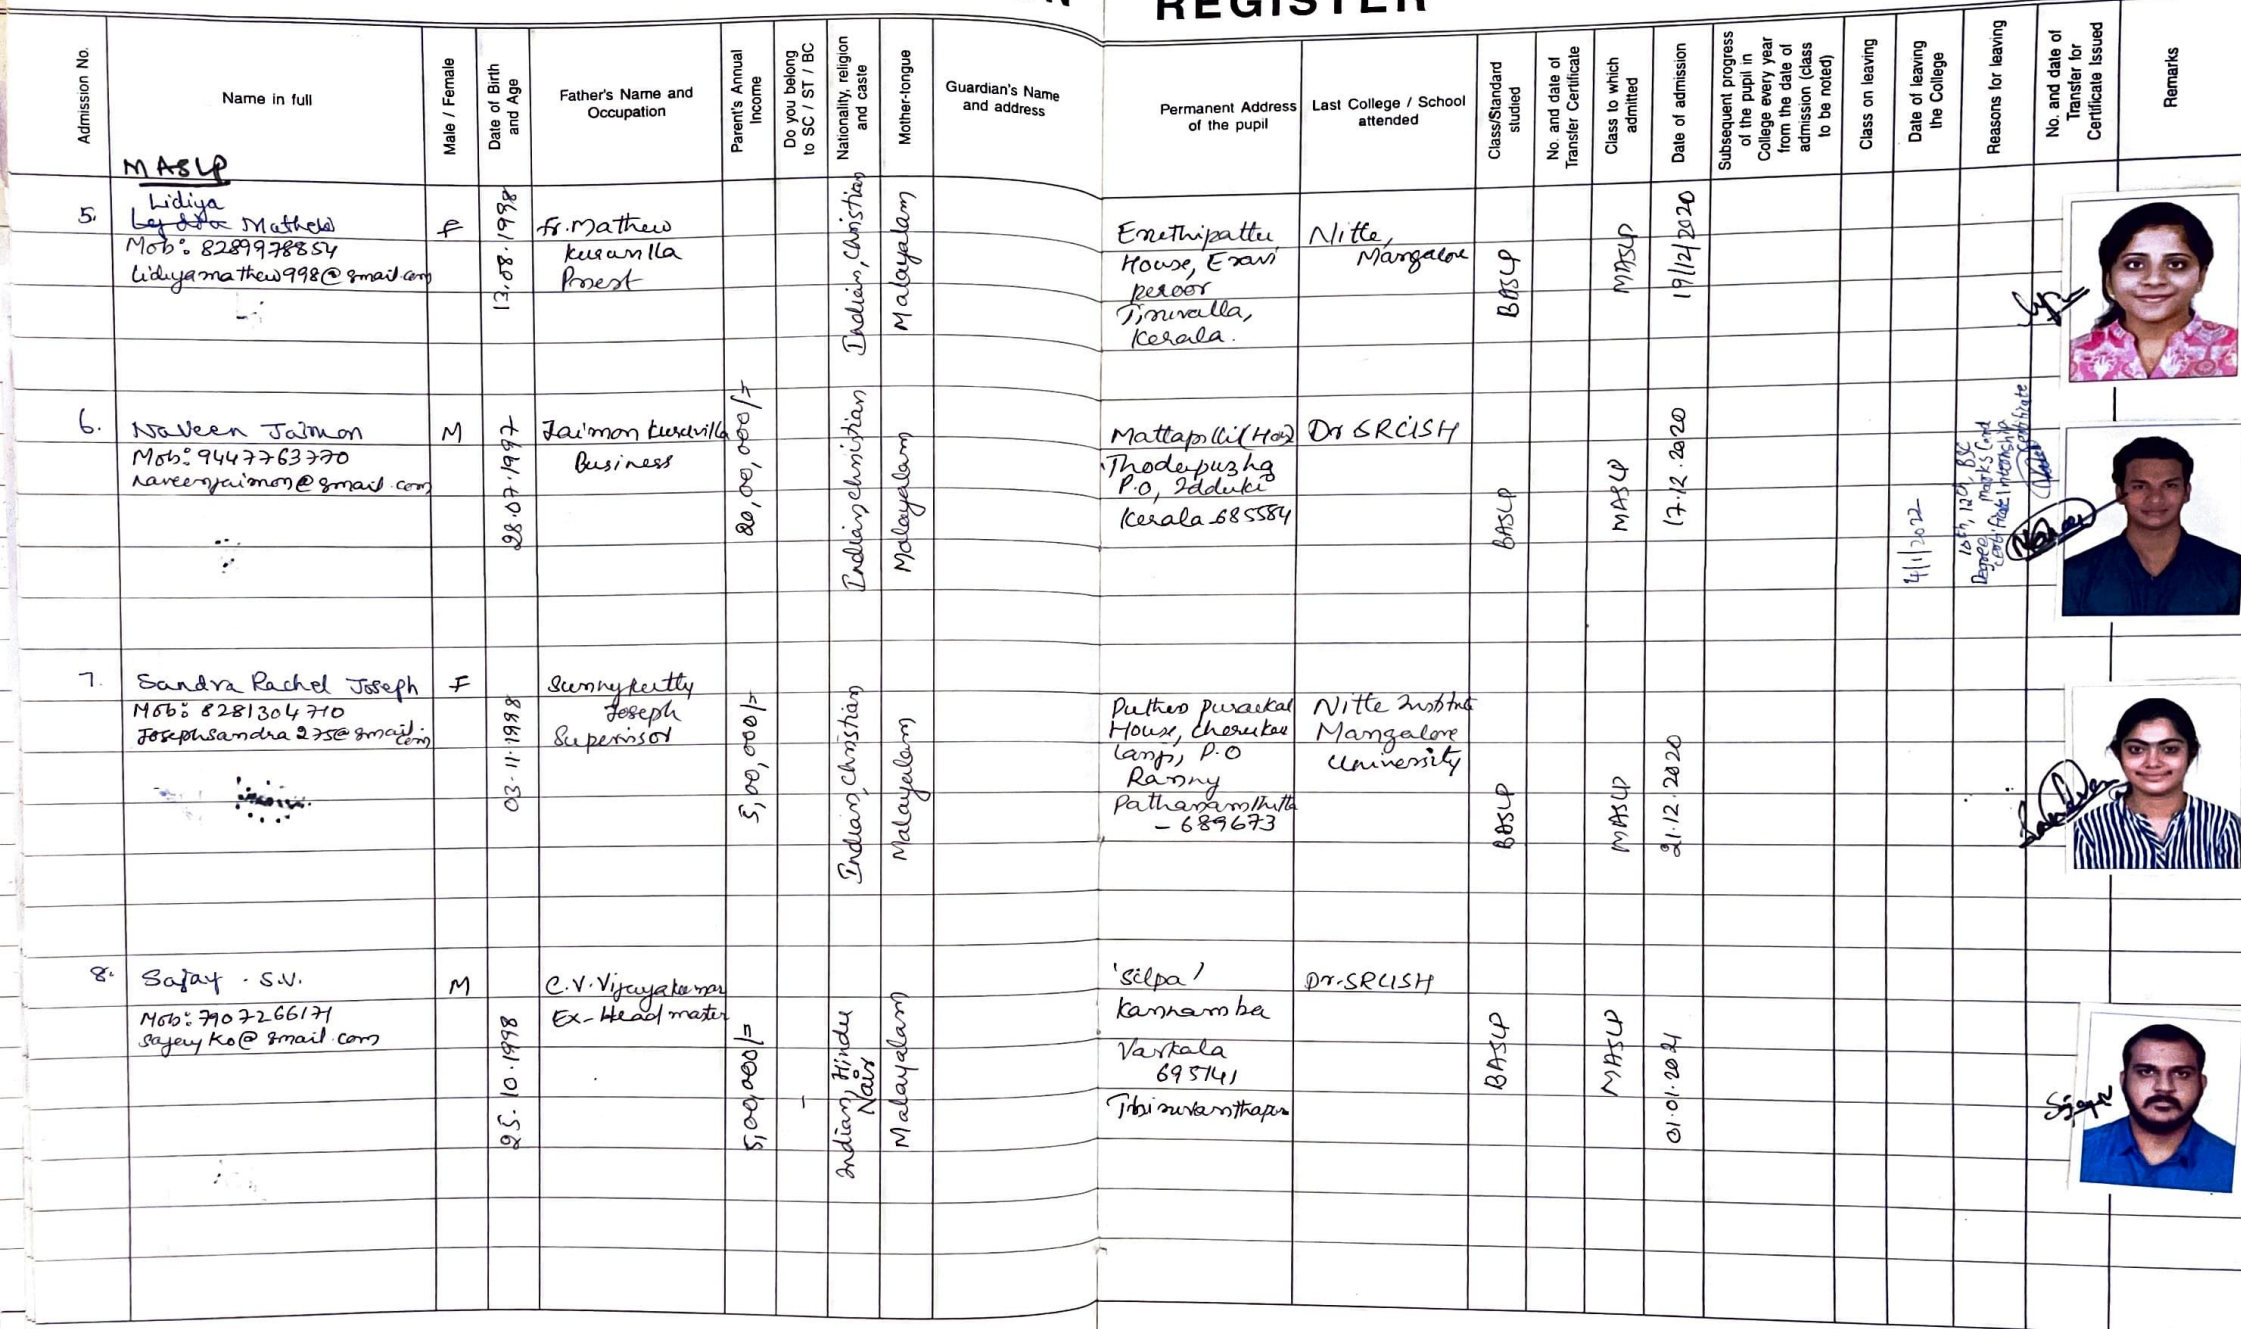 REGISTER
Admission No.
Name in full
Male / Female
Date of Birth
and Age
Father's Name and
Occupation
Parent's Annual
Income
Do you belong
to SC / ST / BC
Nationality, religion
and caste
Mother-tongue
Guardian's Name
and address
Permanent Address
of the pupil
Last College / School
attended
Class/Standard
studied
No. and date of
Transfer Certificate
Class to which
admitted
Date of admission
Subsequent progress
of the pupil in
College every year
from the date of
admission (class
to be noted)
Class on leaving
Date of leaving
the College
Reasons for leaving
No. and date of
Transfer for
Certificate Issued
Remarks
MASLP
5.
Lidiya
Mathew
Mob: 8289978854
lidiyamathew998@gmail.com
F
13.08.1998
Fr. Mathew
Kuruvilla
Priest
Indian, Christian
Malayalam
House, Eravi
peroor
Tiruvalla,
Kerala.
Nitte,
Mangalore
BASLP
MASLP
19/12/2020
6.
Naveen Jaimon
Mob: 9447763770
naveenjaimon@gmail.com
M
28.07.1997
Jaimon Kuruvilla
Business
20,00,000/=
Indian, christian
Malayalam
Thodupuzha
P.O, Idduki
Kerala 685584
Dr SRCISH
BASLP
MASLP
17.12.2020
4/1/2022
10th, 12th, BSc
Degree Marks Card
Certificate Internship
Certificate
7.
Sandra Rachel Joseph
Mob: 8281304710
Josephsandra275@gmail.com
F
03-11-1998
Sunnykutty
Joseph
Supervisor
5,00,000/=
Indian, Christian
Malayalam
House,
P.O
Ranny
Pathanamthitta
- 689673
Nitte Institute
Mangalore
University
BASLP
MASLP
21.12.2020
8.
Sajay . S.V.
Mob: 7907266171
M
25.10.1998
C.V. Vijayakumar
Ex-Head master
5,00,000/=
-
Indian, Hindu
Nair
Malayalam
'Silpa'
Kannamba
Varkala
695141
Dr. SRCISH
BASLP
MASLP
01.01.2021